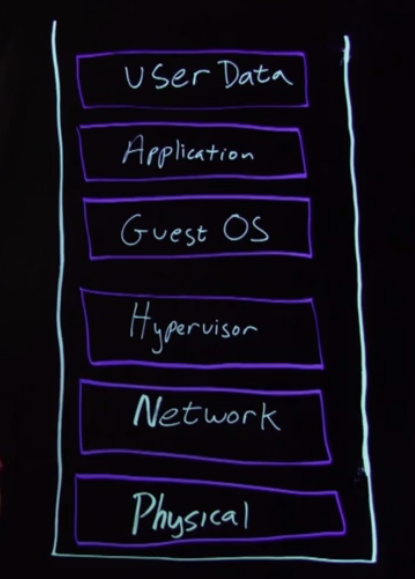 User Data
Application
Guest OS
Hypervisor
Network
Physical